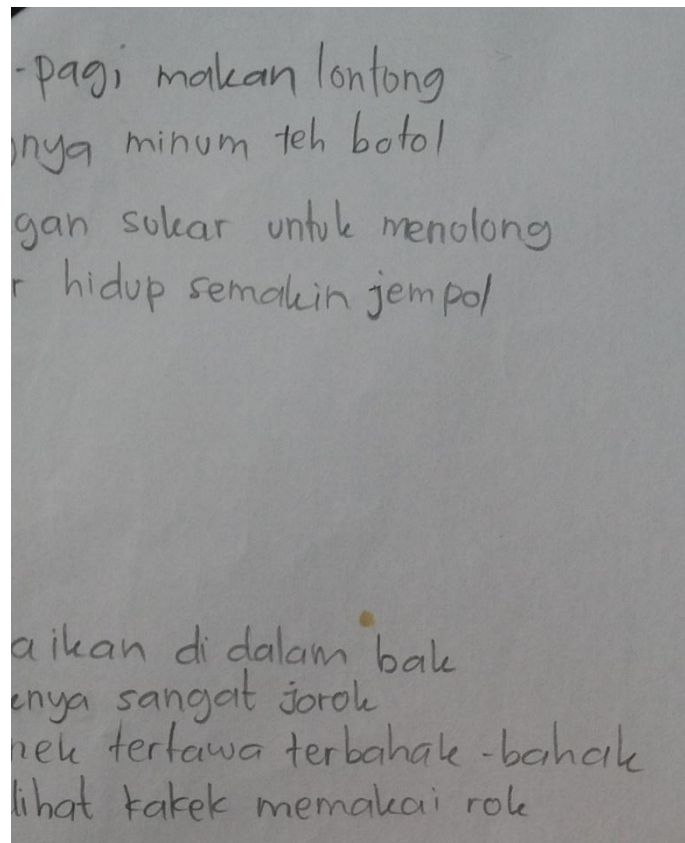 -pagi makan lontong
nya minum teh botol
gan sukar untuk menolong
r hidup semakin jempol
a ikan di dalam bak
enya sangat jorok
nek tertawa terbahak-bahak
lihat kakek memakai rok